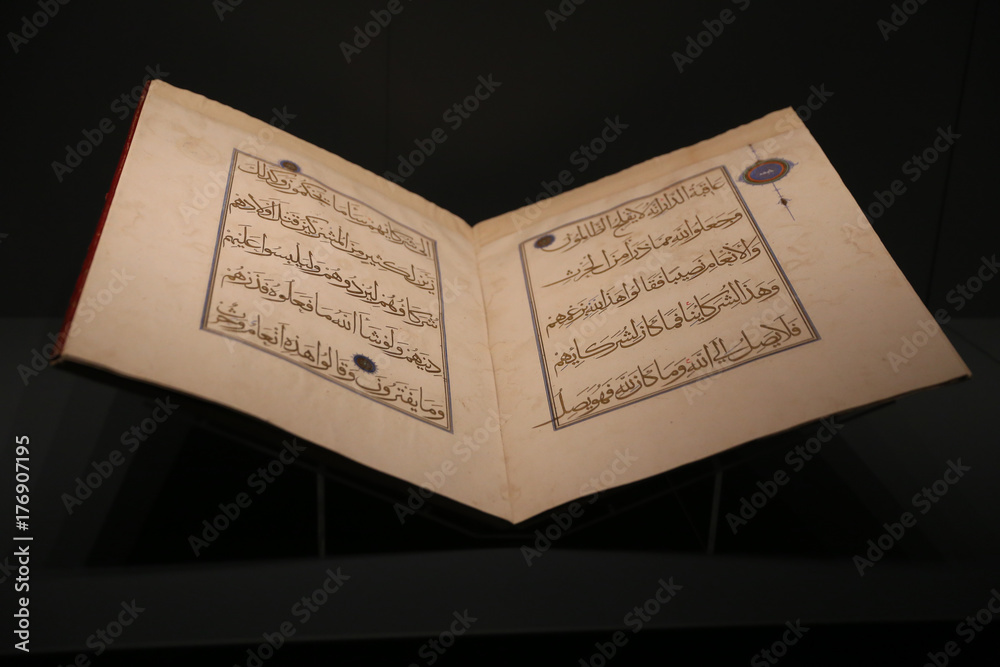 عاقبة الدار إنه لا يفلح الظالمون
وجعلوا لله مما ذرأ من الحرث
والأنعام نصيبا فقالوا هذا لله بزعمهم
وهذا لشركائنا فما كان لشركائهم
فلا يصل إلى الله وما كان لله فهو يصل
إلى شركائهم ساء ما يحكمون وكذلك
زين لكثير من المشركين قتل أولادهم
شركاؤهم ليردوهم وليلبسوا عليهم
دينهم ولو شاء الله ما فعلوه فذرهم
وما يفترون وقالوا هذه أنعام وحرث
Adobe Stock | #176907195
Adobe Stock